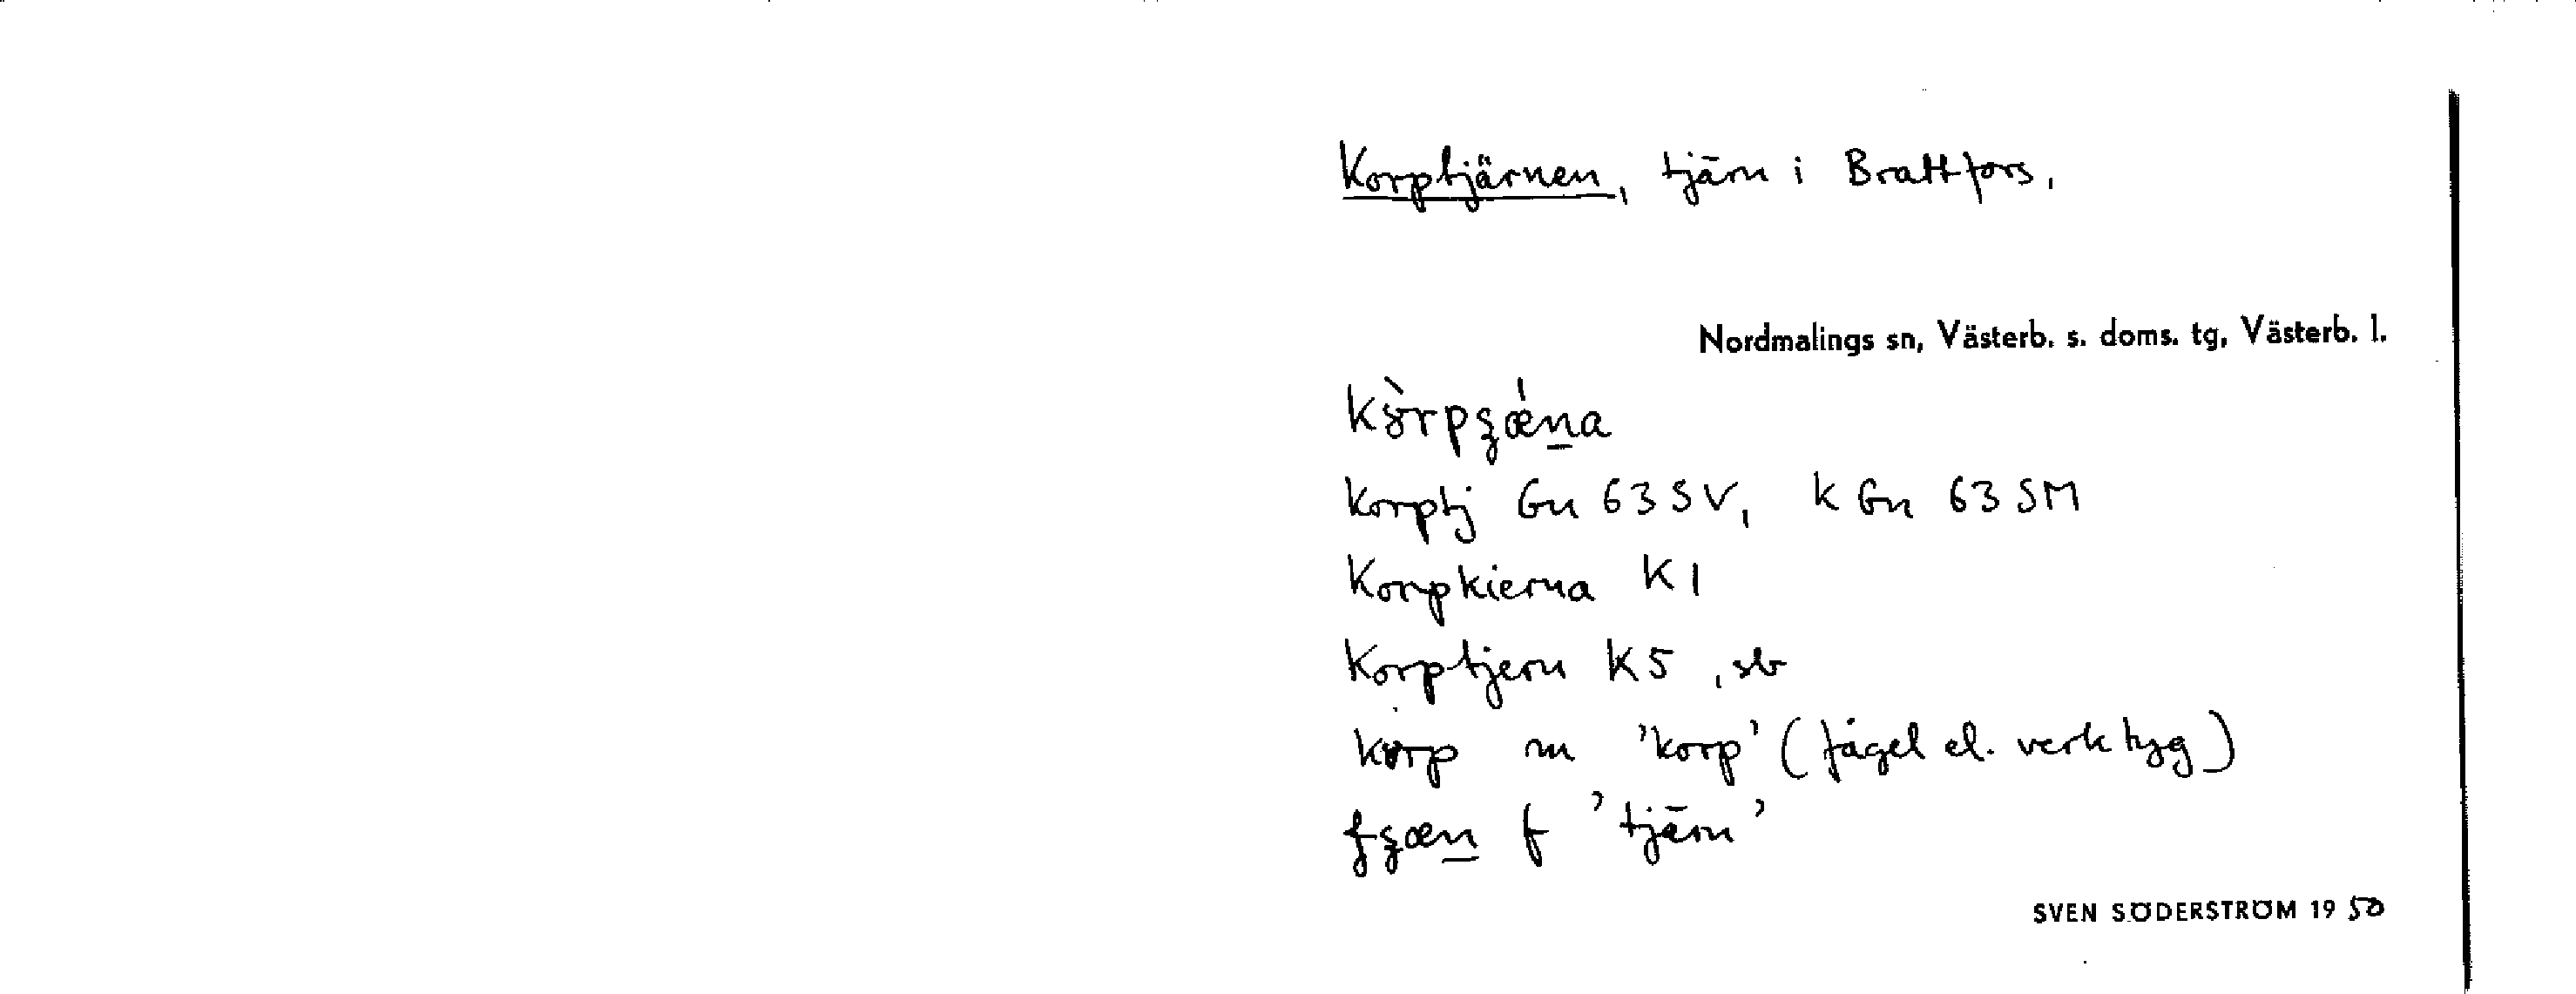 Korptjärnen, tjärn i Brattfors.
Nordmalings sn, Västerb. s. doms. tg, Västerb. l.
Korptj Gn 63 SV, k Gn 63 SM
Korpkierna K 1
Korptjern K 5, sb
korp m 'korp' (fågel el. verktyg)
f 'tjärn'
SVEN SÖDERSTRÖM 19 50